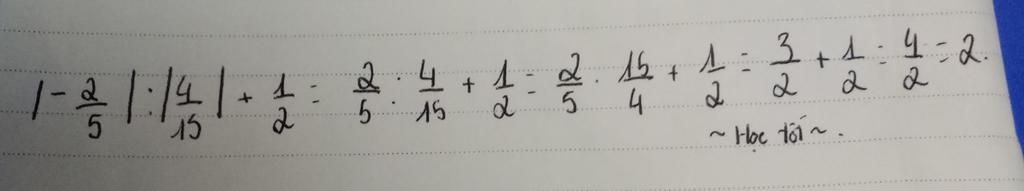 |-2/5| : |4/15| + 1/2 = 2/5 : 4/15 + 1/2 = 2/5 . 15/4 + 1/2 = 3/2 + 1/2 = 4/2 = 2.
~ Học tốt ~.